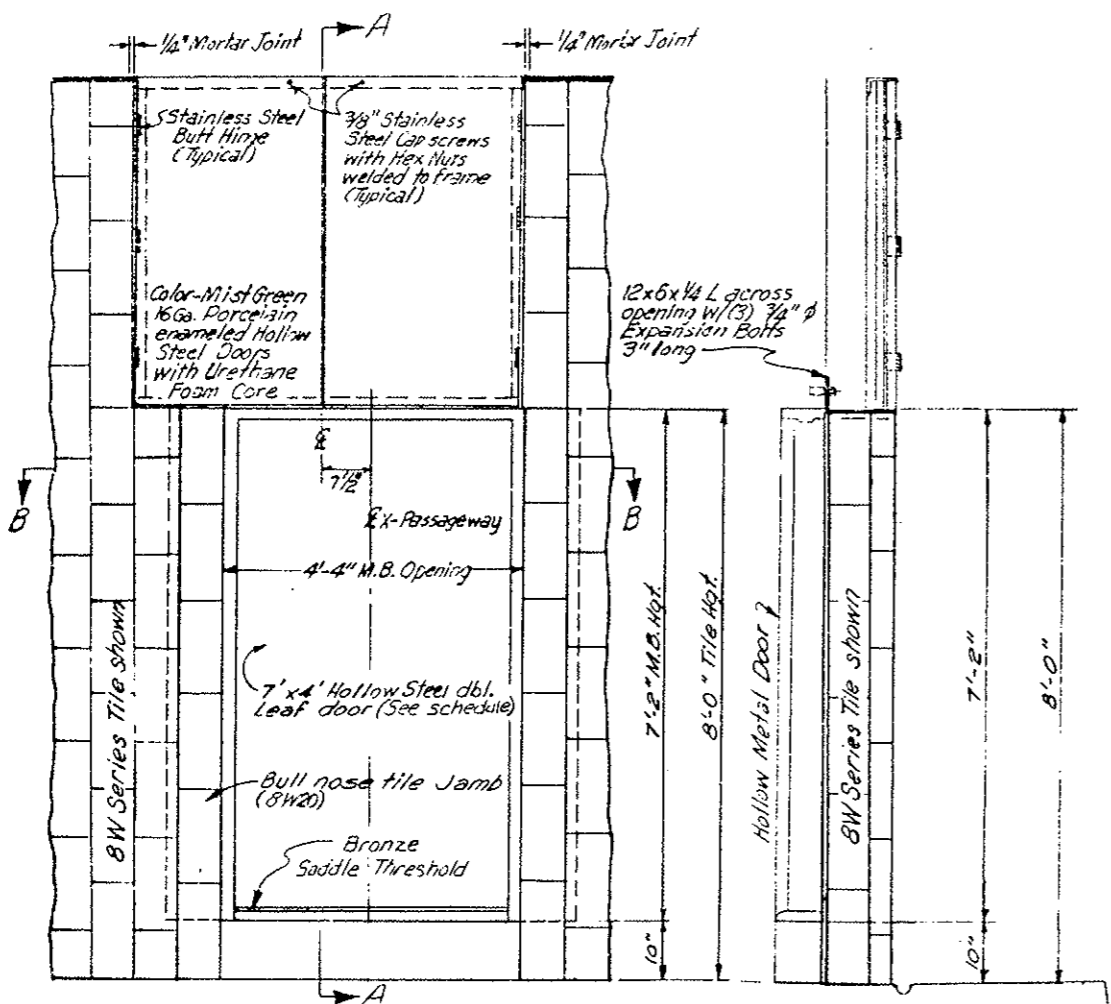 A
1/4" Mortar Joint
1/4" Mortar Joint
Stainless Steel
Butt Hinge
(Typical)
3/8" Stainless
Steel Cap screws
with Hex Nuts
welded to frame
(Typical)
Color-Mist Green
16 Ga. Porcelain
enameled Hollow
Steel Doors
with Urethane
Foam Core
12x6x1/4 L across
opening w/(3) 3/4" φ
Expansion Bolts
3" long
℄
7 1/2"
B
B
℄ X-Passageway
4'-4" M.B. Opening
7'x4' Hollow Steel dbl.
Leaf door (See schedule)
Bull nose tile Jamb
(8W20)
Bronze
Saddle Threshold
8W Series Tile shown
7'-2" M.B. Hgt.
8'-0" Tile Hgt.
10"
Hollow Metal Door
8W Series Tile shown
7'-2"
8'-0"
10"
A